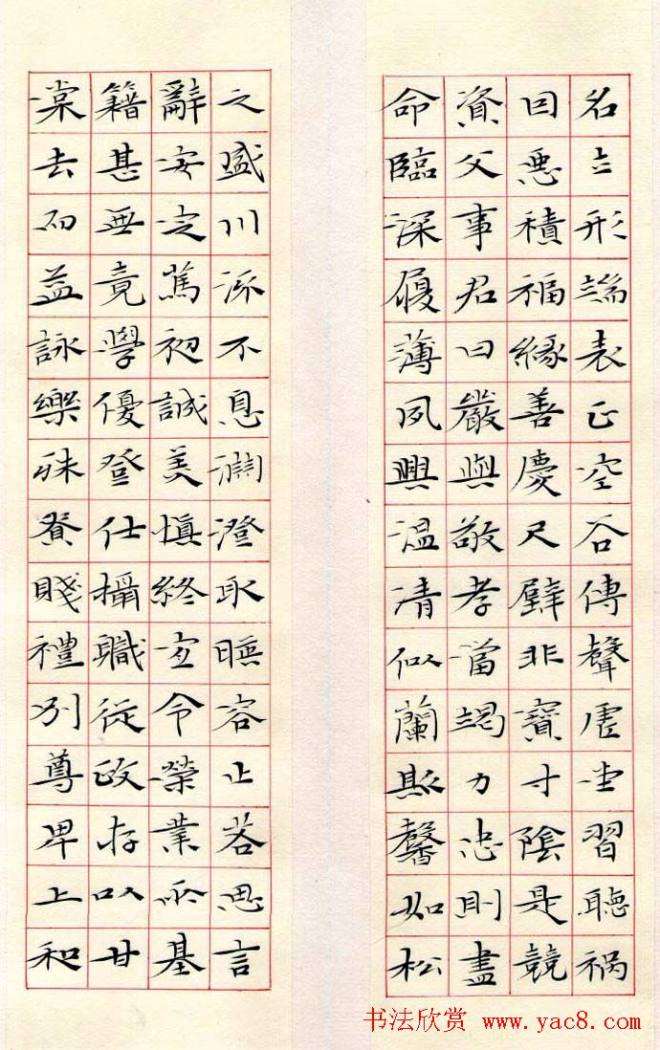 名立形端表正空谷傳聲虛堂習聽禍
因惡積福緣善慶尺璧非寶寸陰是競
資父事君曰嚴與敬孝當竭力忠則盡
命臨深履薄夙興溫凊似蘭斯馨如松
之盛川流不息淵澄取暎容止若思言
辭安定篤初誠美慎終宜令榮業所基
籍甚無竟學優登仕攝職從政存以甘
棠去而益詠樂殊貴賤禮別尊卑上和
书法欣赏 www.yac8.com